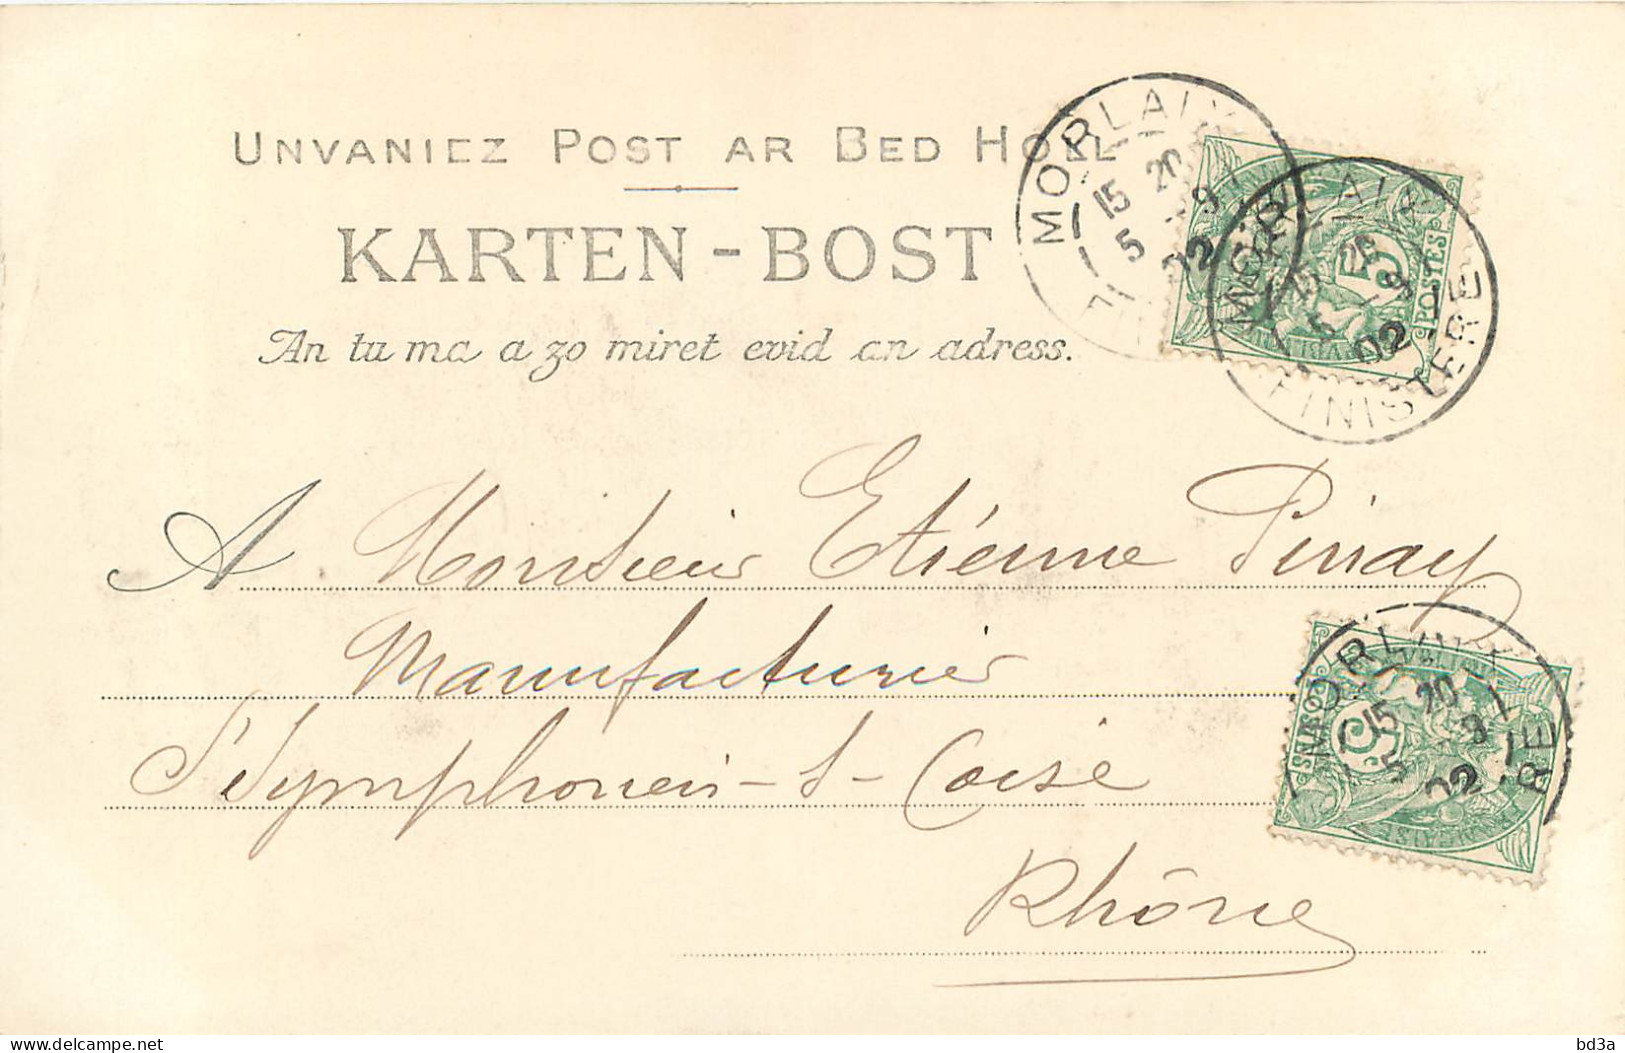 UNVANIEZ POST AR BED HOLL
KARTEN-BOST
An tu ma a zo miret evid an adress.
MORLAIX
15 20
5 9
02
MORLAIX
15 20
5 9
02
FINISTERE
5
POSTES
A Monsieur Etienne Pinay
Manufacturier
St Symphorien-s-Coise
Rhône
MORLAIX
15 20
5 9
02
RE
5
POSTES
delcampe.net
bd3a